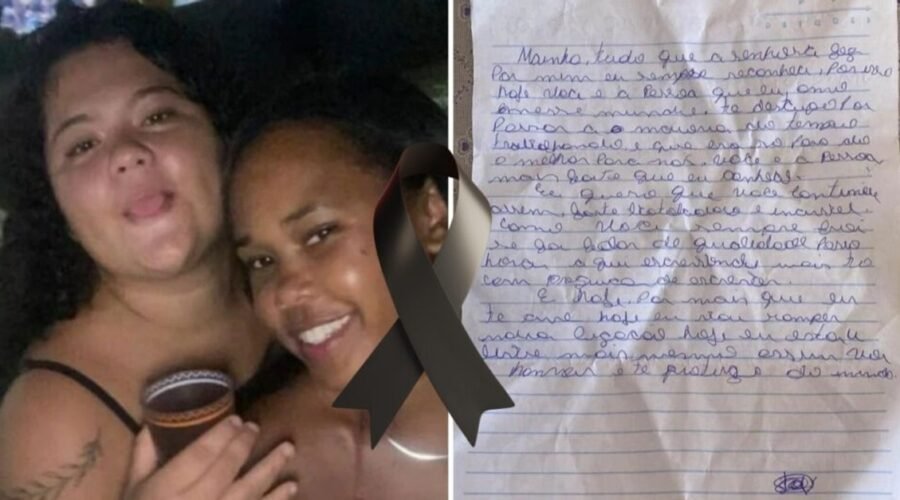 Mainha, tudo que a senhora fez
por mim eu sempre reconheci, por isso
hoje você é a pessoa que eu amo
nesse mundo, te desculpo por
passar a o maioria do tempo
trabalhando e que era so para da
o melhor para nos. você é a pessoa
mais forte que eu conheci.
Eu quero que você continue
assim, forte trabalhadora e incrivel.
como você sempre
hora aqui escrevendo mais to
com preguiça de escrever.
E hoje, por mais que eu
te ame hoje eu vou romper
nossa ligacao hoje eu
mais mesmo assim vou
e te protege do mundo.